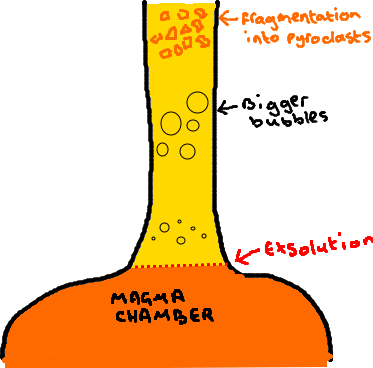 Fragmentation
into Pyroclasts
Bigger
bubbles
Exsolution
MAGMA
CHAMBER